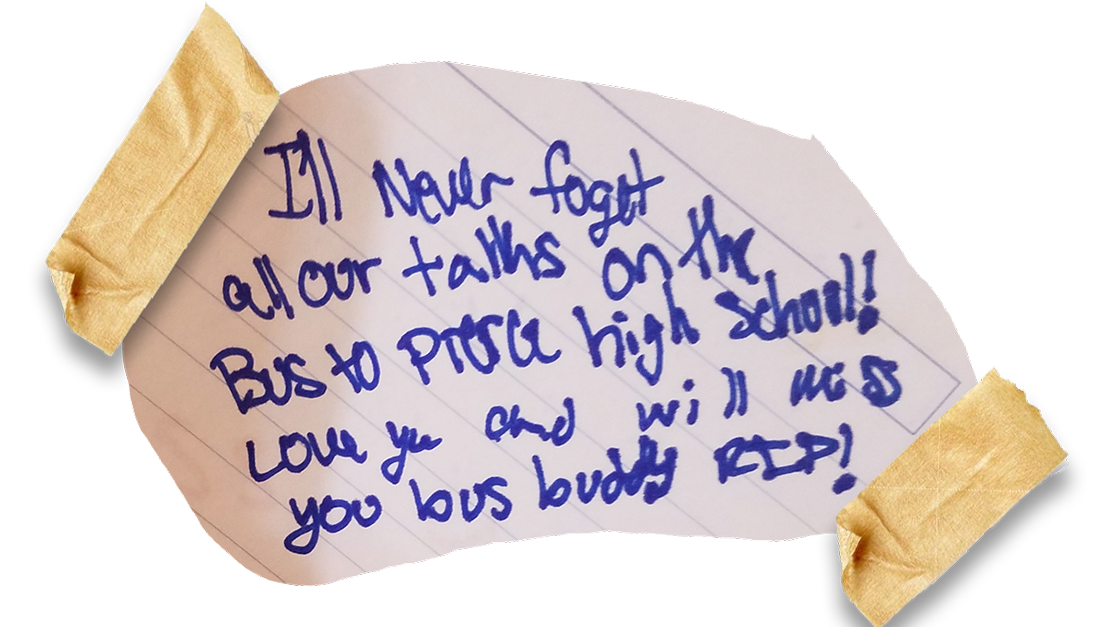 I'll Never foget
all our talks on the
Bus to Pierce high School!
Love yu and will miss
you bus buddy RIP!